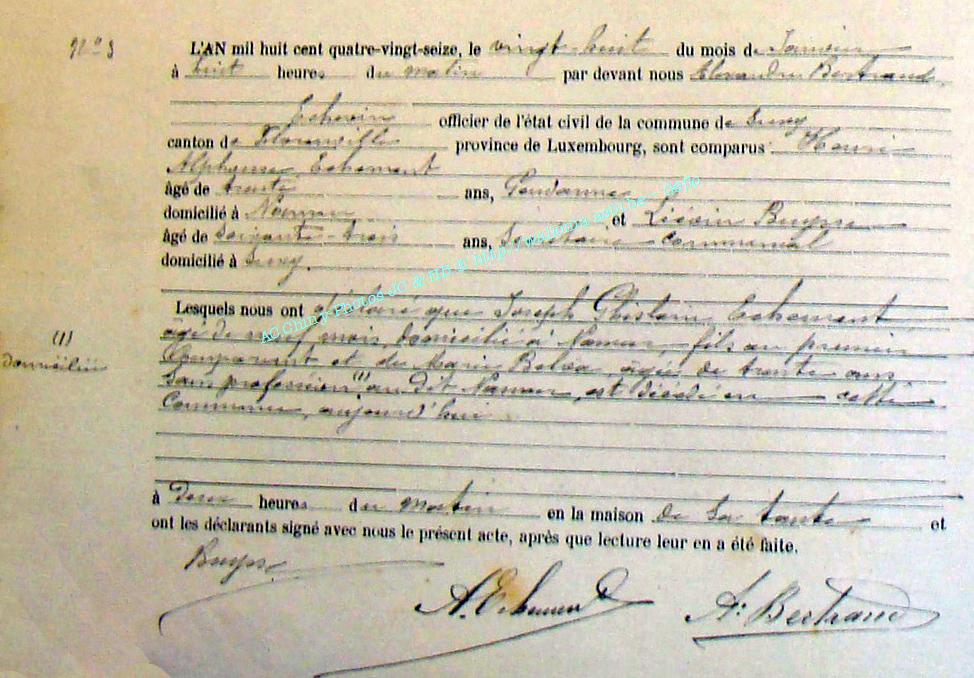 N° 3
L'AN mil huit cent quatre-vingt-seize, le vingt huit du mois de Janvier
à huit heures du matin par devant nous Alexandre Bertrand,
Echevin officier de l'état civil de la commune de Suxy
canton de Florenville province de Luxembourg, sont comparus: Henri
Alphonse Echement
âgé de trente ans, Gendarme
domicilié à Namur et Liévin Buysse
âgé de soixante-trois ans, Secrétaire communal
domicilié à Suxy.
Lesquels nous ont déclaré que Joseph Ghislain Echement
âgé de neuf mois, domicilié à Namur, fils au premier
Comparant et de Marie, âgée de trente ans
sans profession (1) au dit Namur, est décédé en cette
Commune, aujourd'hui
(1)
domiciliée
à deux heures du matin en la maison de sa tante et
ont les déclarants signé avec nous le présent acte, après que lecture leur en a été faite.
Buysse
A. Echement
A. Bertrand
AC Chiny - Photos JC & MB ©